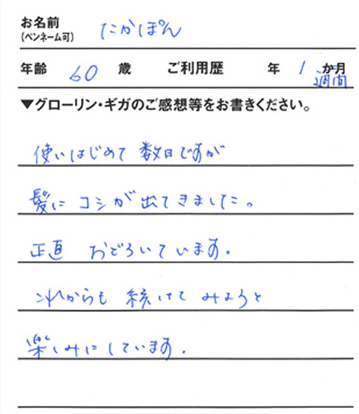 お名前
(ペンネーム可) たかぽん
年齢 60 歳 ご利用歴 年 1 か月
週間
▼グローリン・ギガのご感想等をお書きください。
使いはじめて 数日ですが
髪に コシが出てきました。
正直 おどろいています。
これからも 続けて みようと
楽しみにしています。